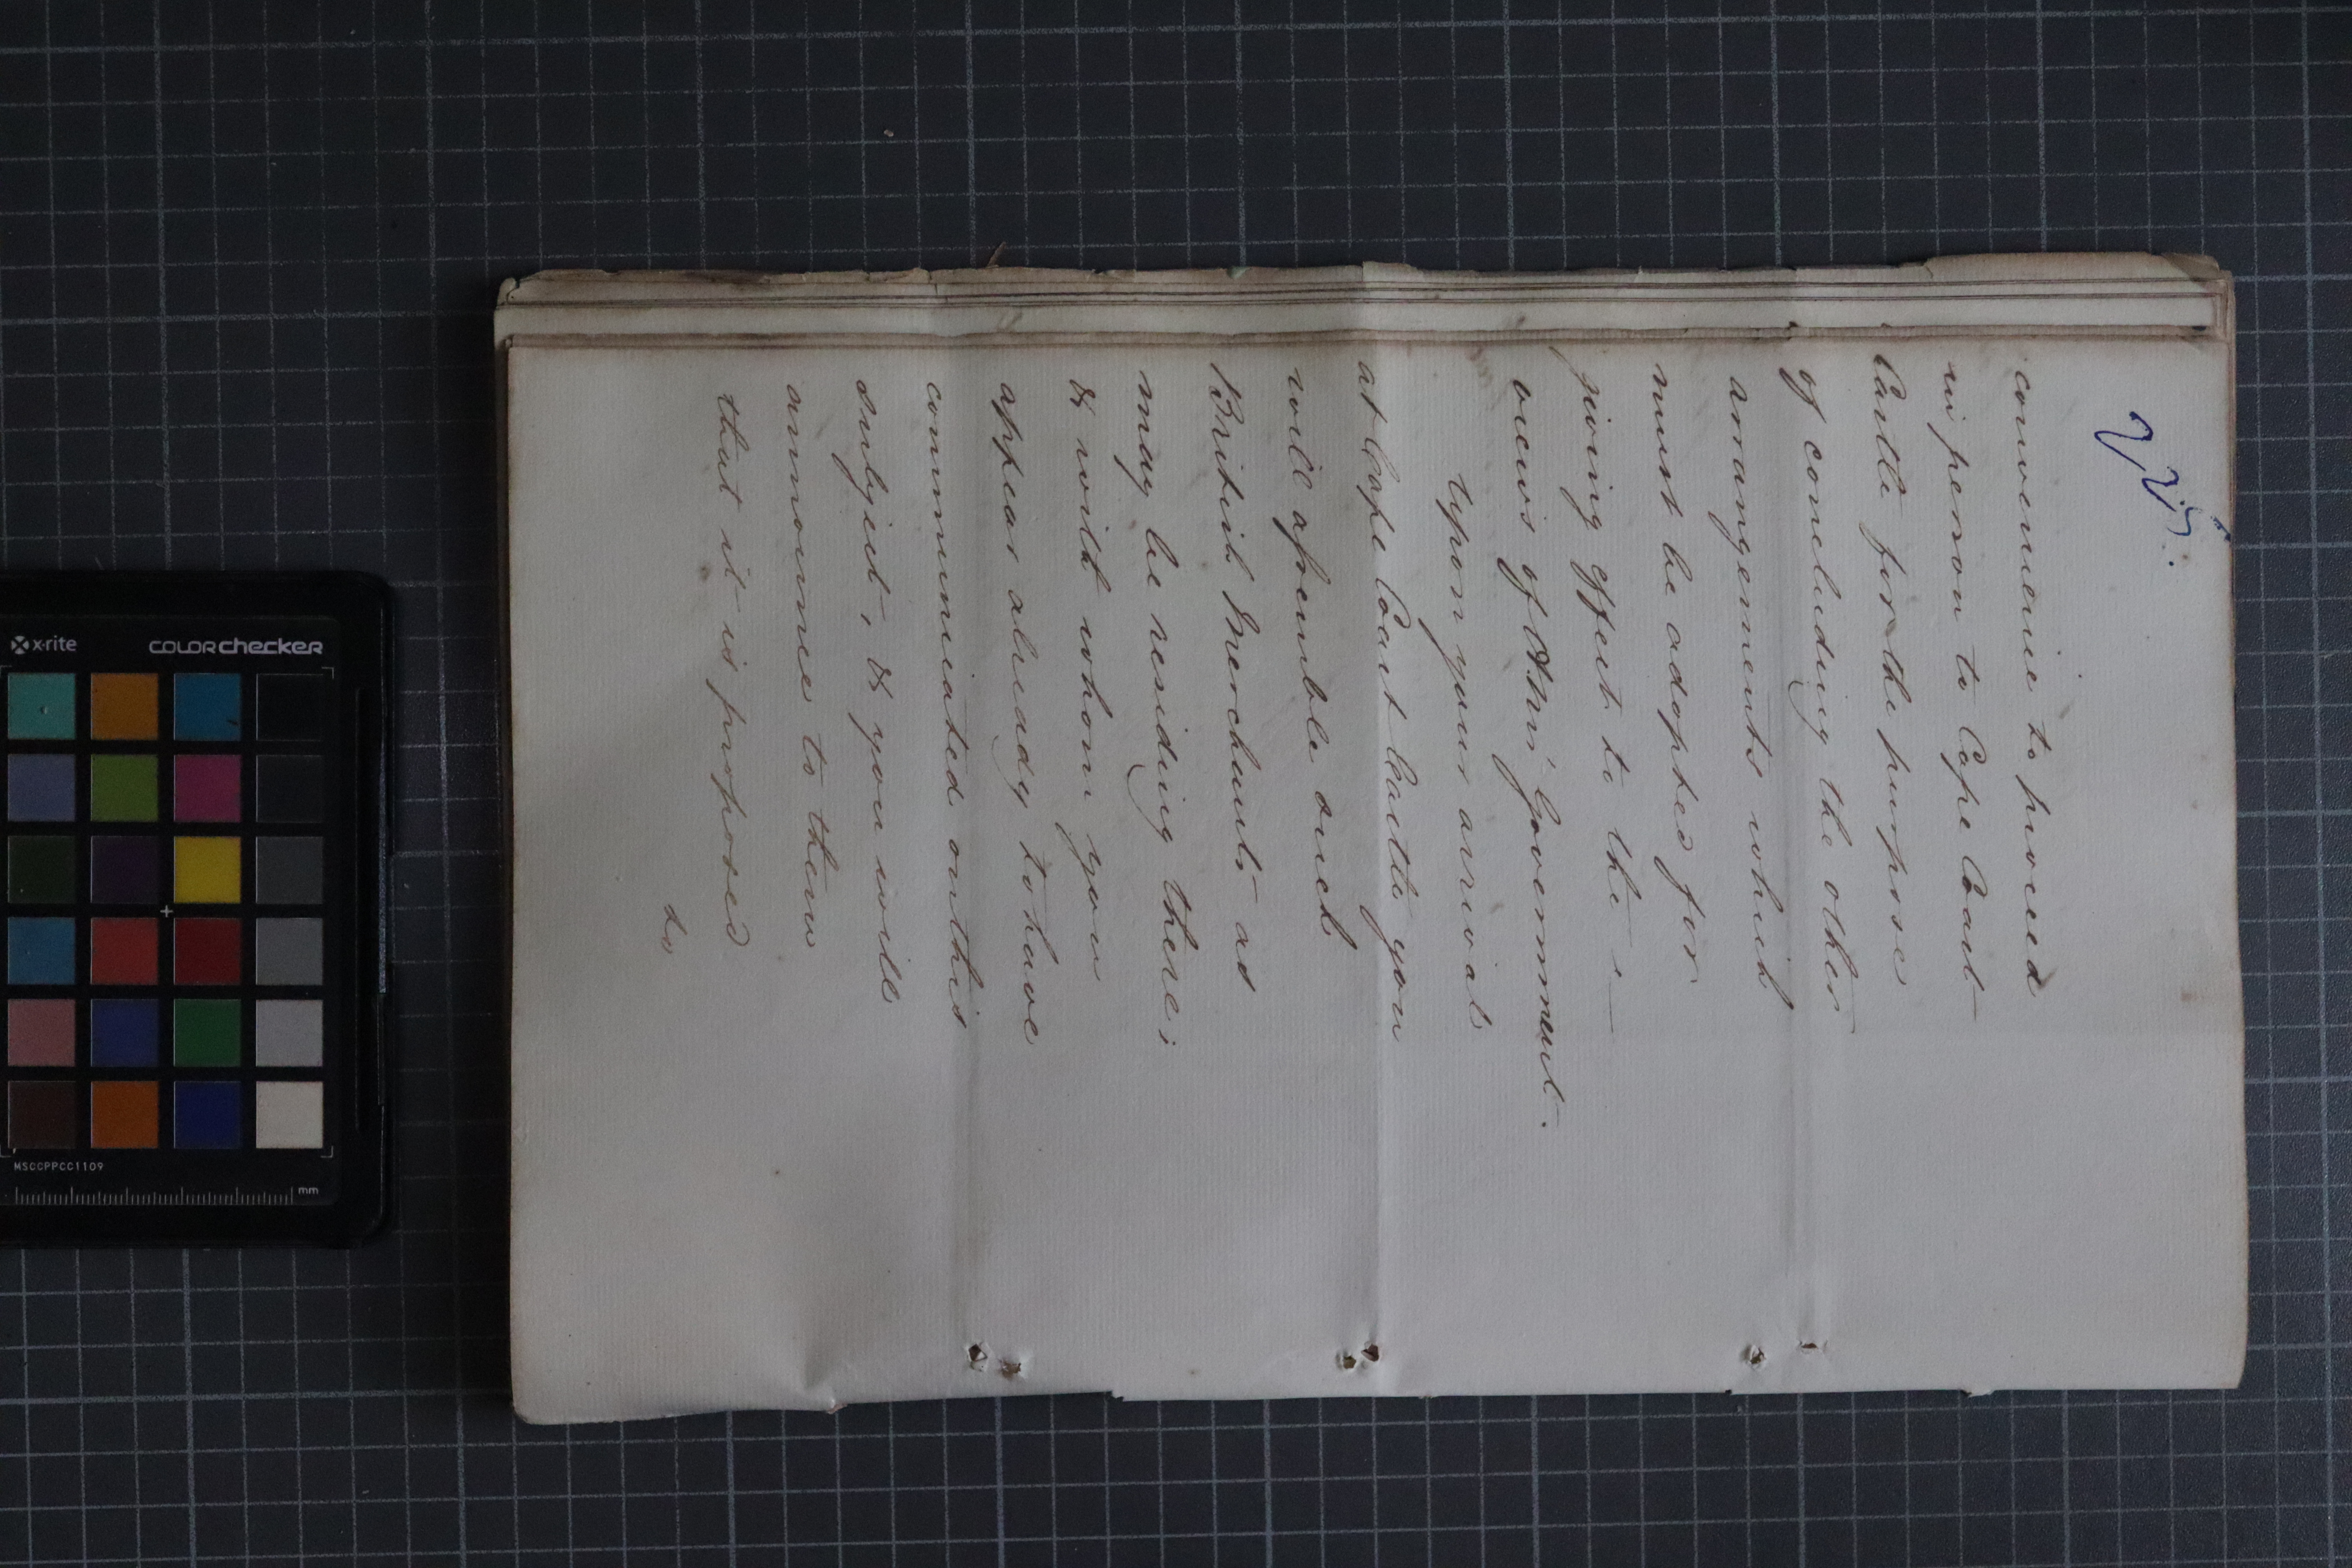 convenient to proceed
in person to Cape Coast
Castle for the purpose
of concluding the other
arrangements which
must be adopted for
giving effect to the
views of H.M's Government.
Upon your arrival
at Cape Coast Castle you
will assemble such
British Merchants as
may be residing there;
& with whom you
appear already to have
communicated on this
subject, & you will
announce to them
that it is proposed
to
x-rite
COLORchecker
MSCCPPCC1109
mm